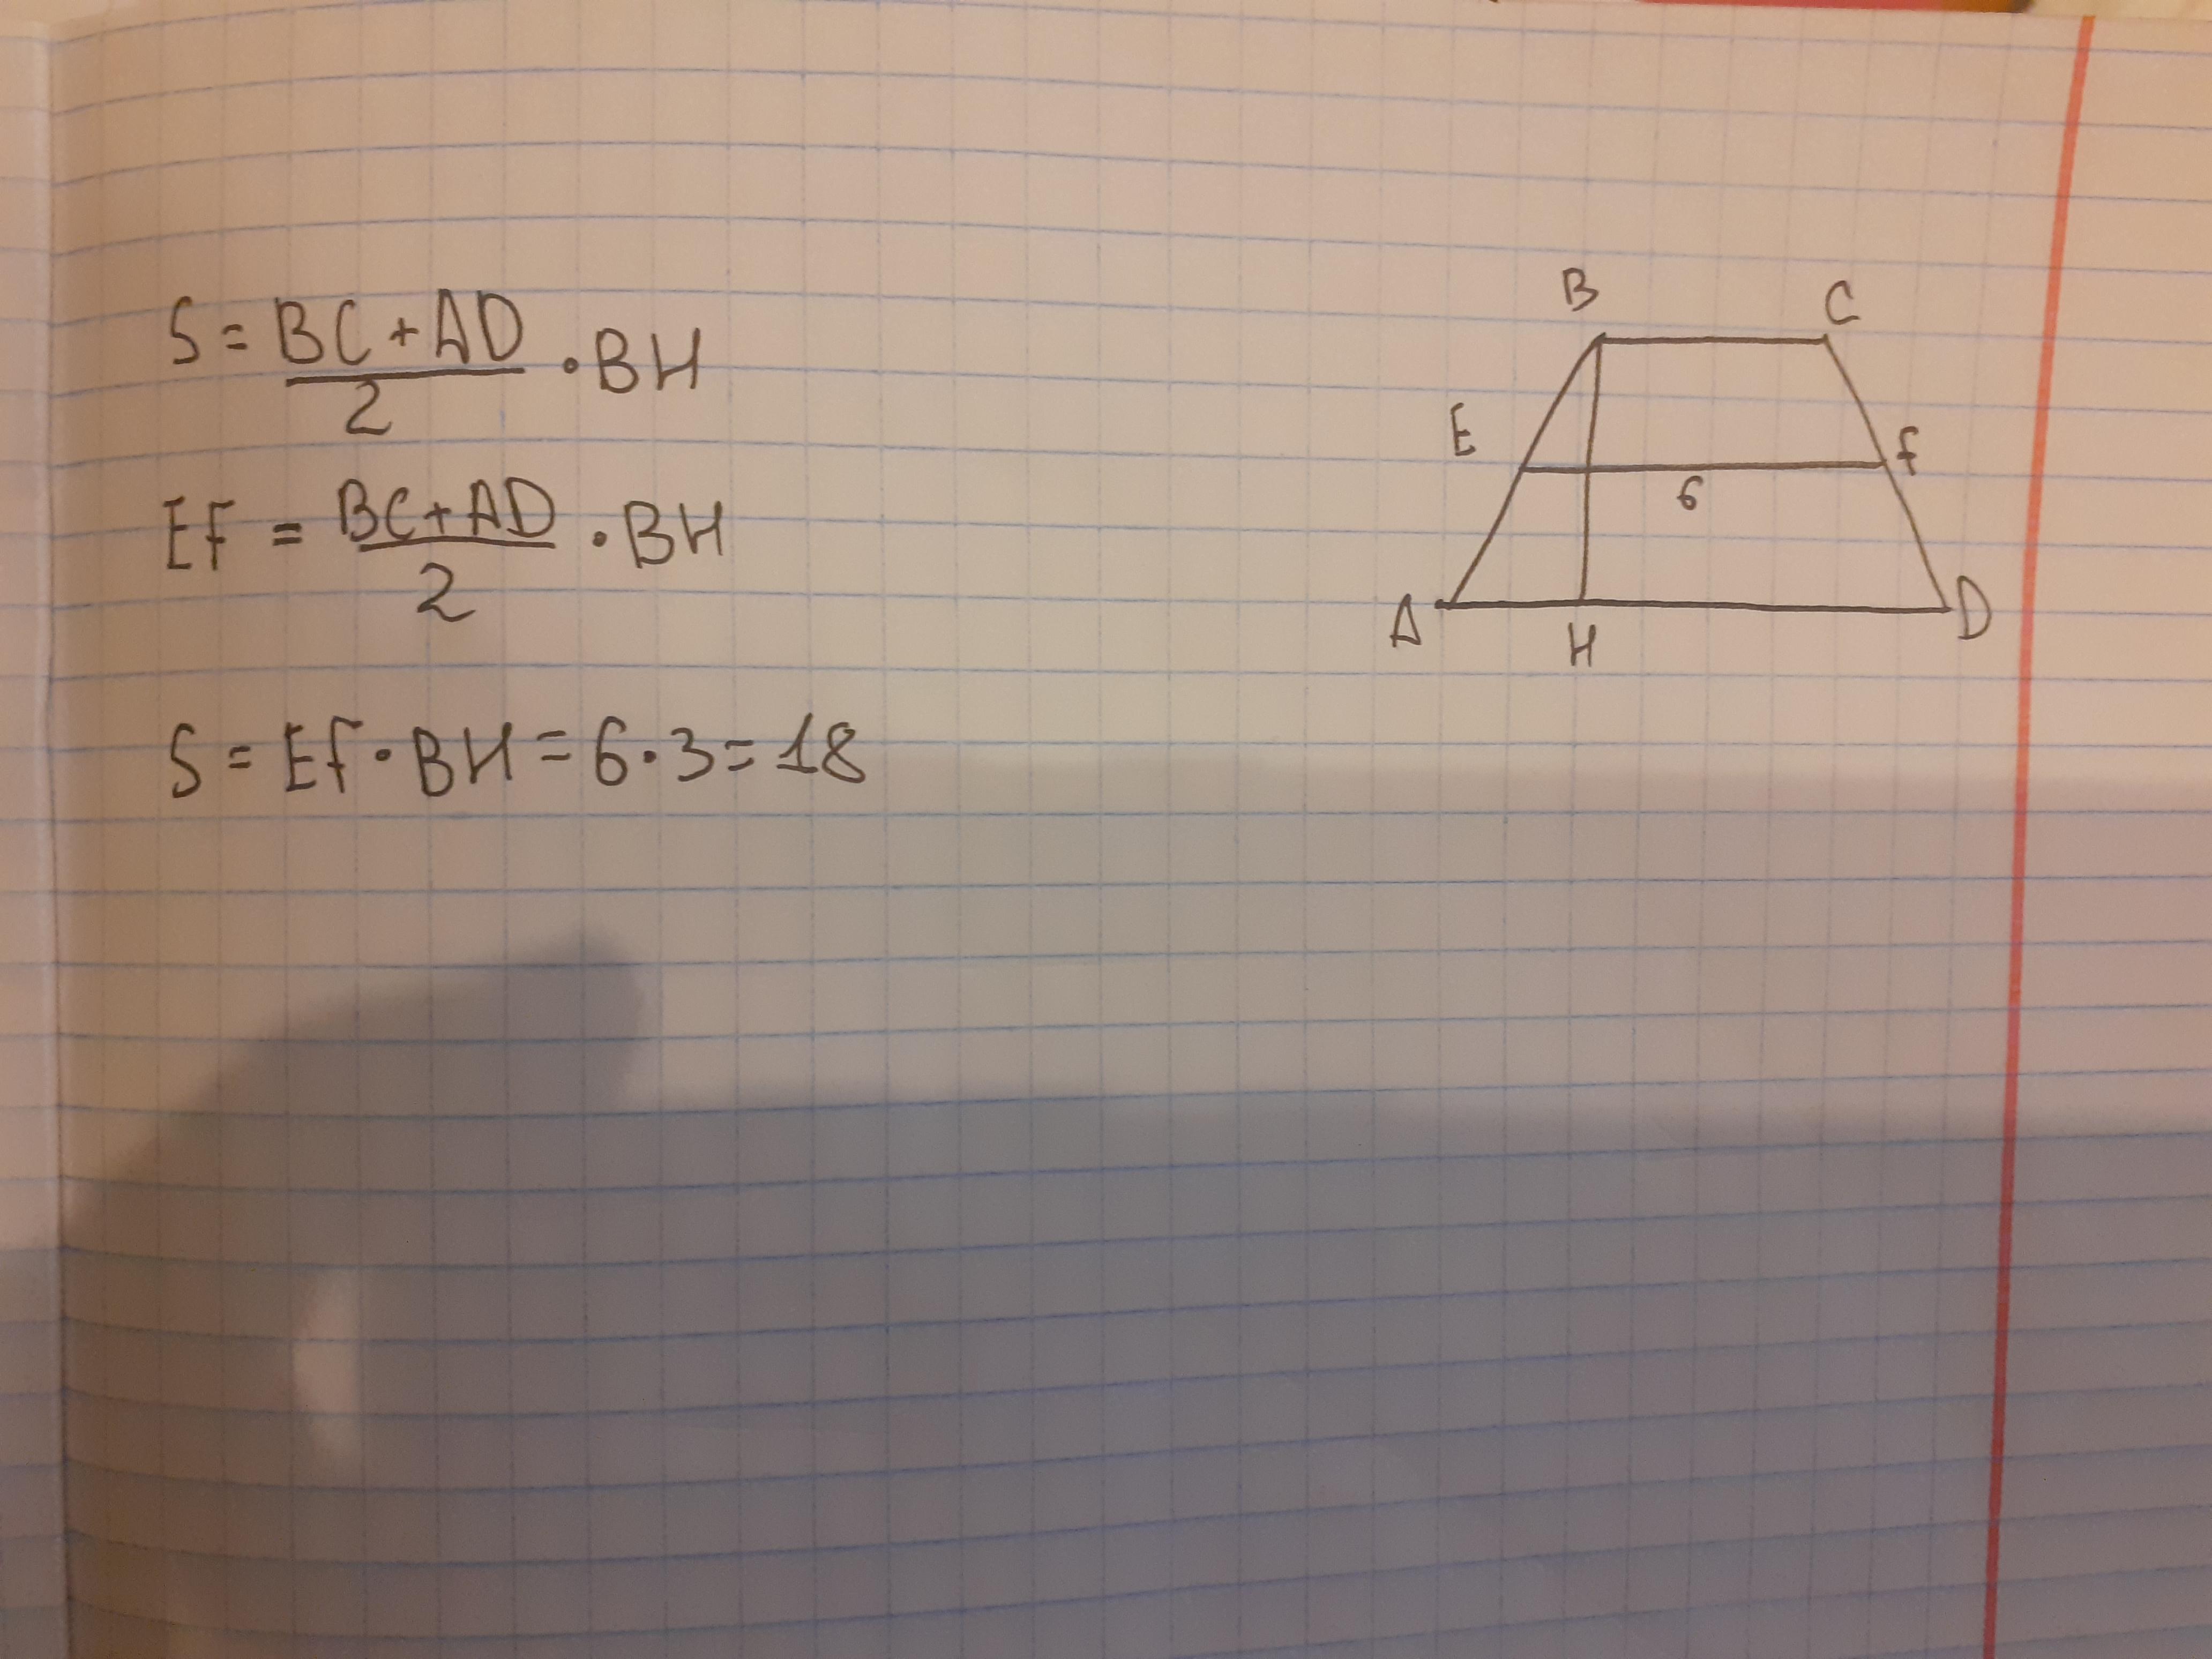 S = BC + AD / 2 · BH
EF = BC + AD / 2 · BH
S = Ef · BH = 6 · 3 = 18
B C
E f
6
A H D